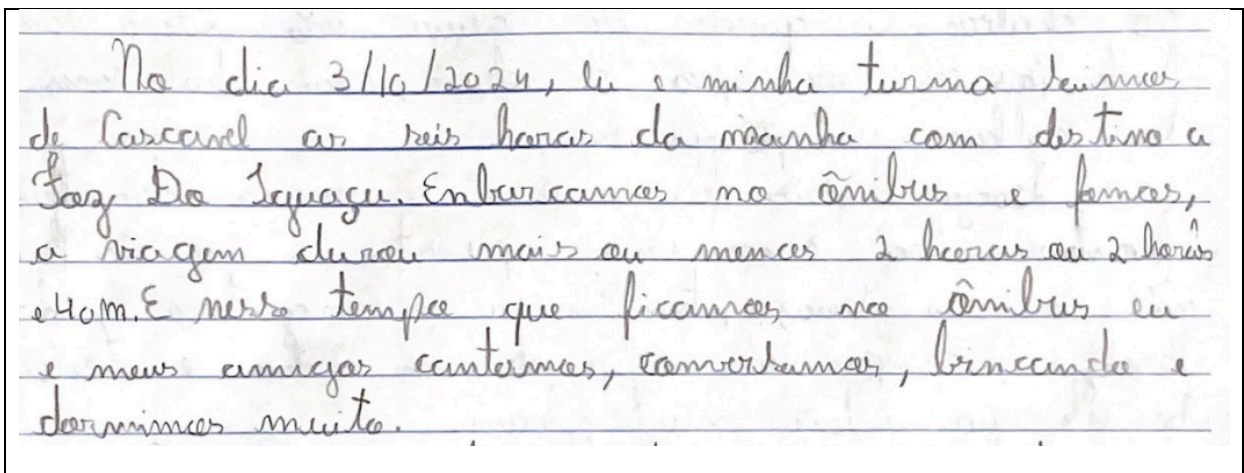 No dia 3/10/2024, eu e minha turma saimos
de Cascavel as seis horas da manhã com destino a
Foz Do Iguaçu. Enbarcamos no ônibus e fomos,
a viagem durou mais ou menos 2 horas ou 2 horas
e 40m. E nesse tempo que ficamos no ônibus eu
e meus amigos cantamos, conversamos, brincando e
dormimos muito.